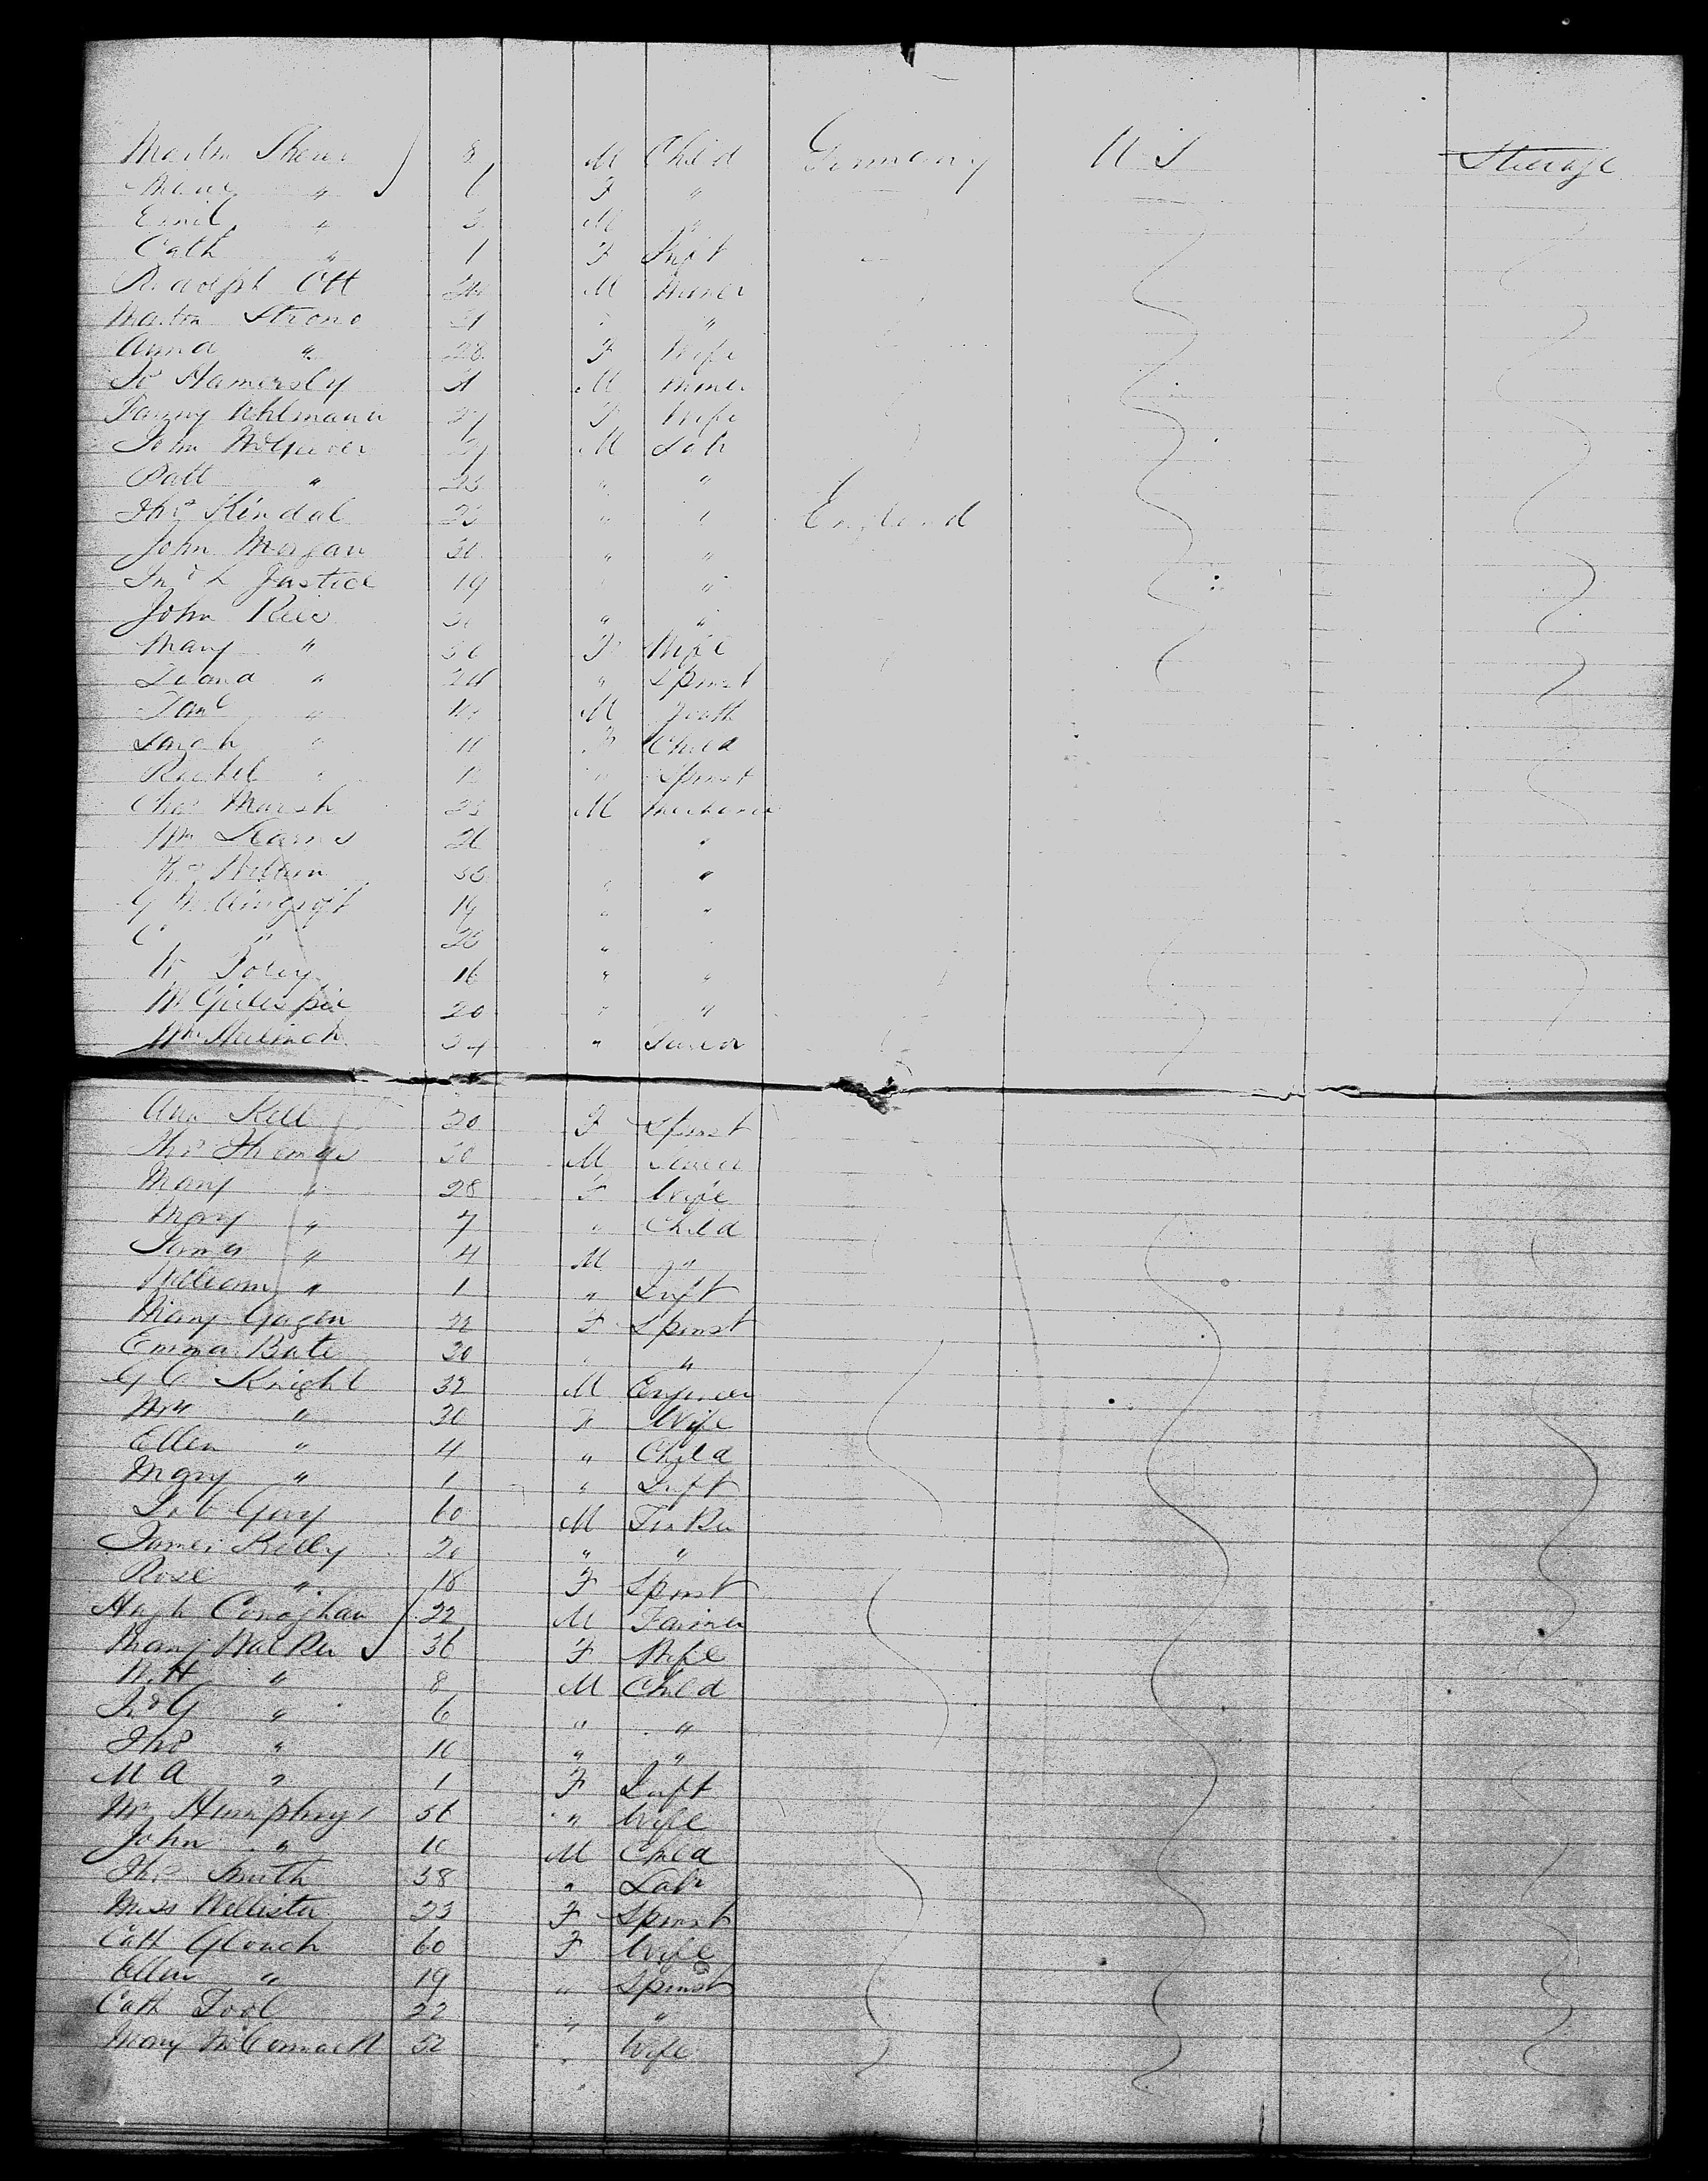 Martin Sherer 8 M Child Germany U S Steerage
Marie " 6 F "
Emil " 3 M "
Cath " 1 F Inft
Rudolph Ott 24 M Miner
Martin Strono 31 " "
Anna " 28 F Wife
Jo Hamersly M Miner
Fanny Uhlmann 27 F Wife
John M Lab
Patt " 25 " "
Thos Kindal 23 " " England
John Morgan 30 " "
Justice 19 " "
John Rees " "
Mary " 36 F Wife
Diana " 24 " Spinst
Danl " M Youth
Sarah " 11 F Child
Rachel " " Spinst
Chas Marsh 23 M Mechanic
Wm Learns 26 "
33 " "
G 19 " "
C " 20 "
Foley 16 " "
M Gillespie 20 " "
Wm 34 " Tailor
Ann Kell 20 F Spinst
Thos Thomas 30 M
Mary " 28 F Wife
Mary " 7 " Child
James " 4 M "
William " 1 " Inft
Mary Gagen 22 F Spinst
Emma Bate 20 " "
G C Knight 32 M Engineer
Mrs " 30 F Wife
Ellen " 4 " Child
Mary " 1 " Inft
Job Gay 60 M
James Kelly 20 " "
Rose " 18 F Spinst
Hugh Conaghan 22 M Farmer
Mary Walker 36 F Wife
W.H " 8 M Child
Jno G " 6 " "
Thos " 10 " "
M A " 1 F Inft
Mrs Humphrys 36 " Wife
John " 10 M Child
Thos Smith 38 " Labr
Miss Wellister 23 F Spinst
Cath Glouch 60 F Wife
Ellen " 19 " Spinst
Cath Tool 22 " "
Mary McCormack 52 " Wife